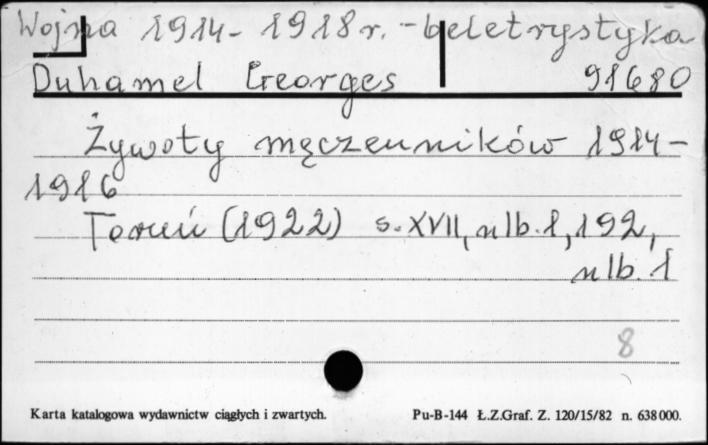 Wojna 1914-1918 r. - beletrystyka
Duhamel Georges 91680
Żywoty męczenników 1914-
1916
Toruń (1922) s. XVII, nlb. 1, 192,
nlb. 1
8
Karta katalogowa wydawnictw ciągłych i zwartych. Pu-B-144 Ł.Z.Graf. Z. 120/15/82 n. 638000.